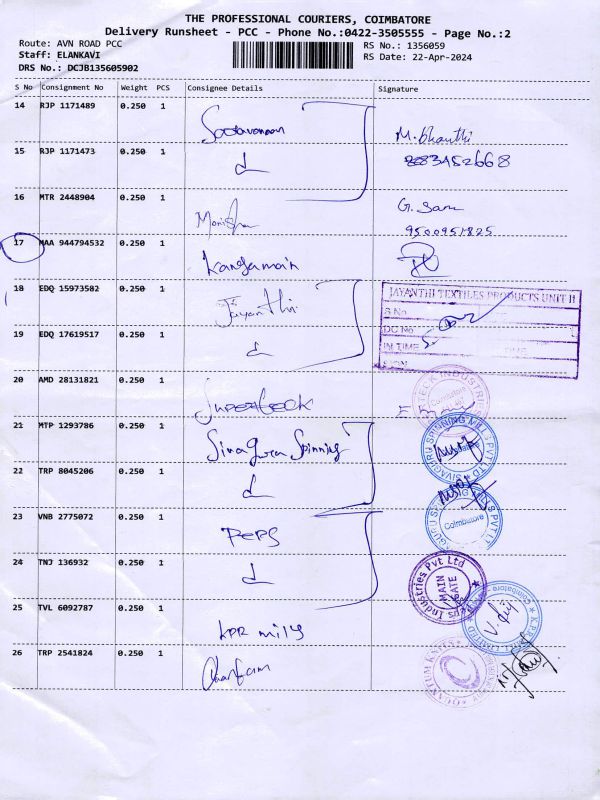 THE PROFESSIONAL COURIERS, COIMBATORE
Delivery Runsheet - PCC - Phone No.:0422-3505555 - Page No.:2
Route: AVN ROAD PCC
RS No.: 1356059
Staff: ELANKAVI
RS Date: 22-Apr-2024
DRS No.: DCJB135605902
S No Consignment No Weight PCS Consignee Details Signature
14 RJP 1171489 0.250 1
M. bhanthi
15 RJP 1171473 0.250 1
8883452668
16 MTR 2448904 0.250 1 Monisha G. Saru
9500951825
17 MAA 944794532 0.250 1 kangamain
18 EDQ 15973502 0.250 1 Jayanthi
JAYANTHI TEXTILES PRODUCTS UNIT II
S No
DC No
19 EDQ 17619517 0.250 1
IN TIME
SIGN
20 AMD 28131821 0.250 1 SUPERTECK
INDUSTRIES
Coimbatore
21 MTP 1293786 0.250 1 Sivaguru Spinning
SIVAGURU SPINNING MILLS PVT LTD
22 TRP 8045206 0.250 1
Coimbatore
23 VNB 2775072 0.250 1 PEPS
24 TNJ 136932 0.250 1
Peps Industries Pvt Ltd
MAIN GATE
25 TVL 6092787 0.250 1 KPR mills
Coimbatore
LIMITED
26 TRP 2541824 0.250 1
QUANTUM KNITS